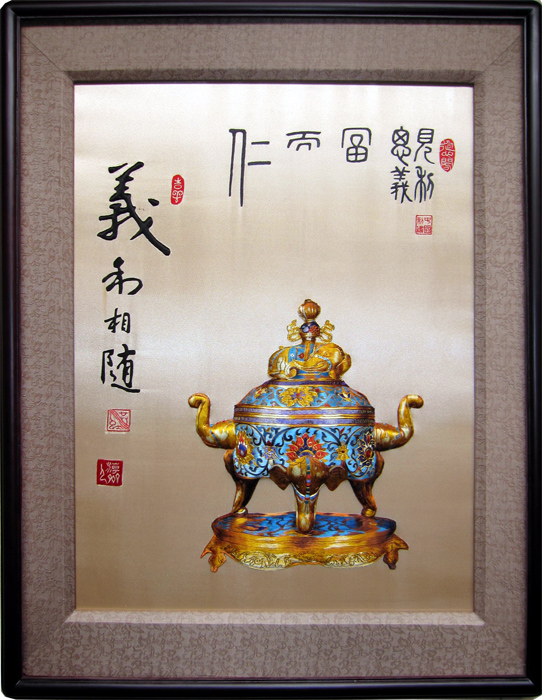 見利
思義
富而仁
義利相随